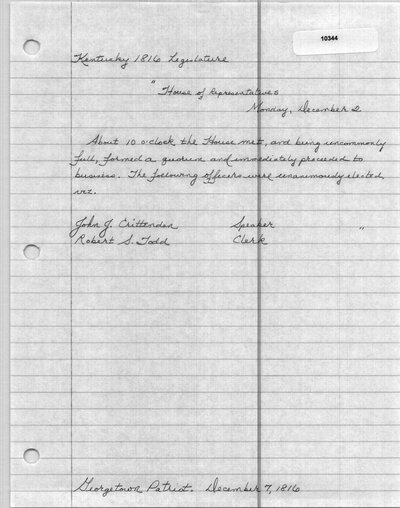 10344
Kentucky 1816 Legislature
" House of Representatives
Monday, December 2
About 10 o'clock the House met, and being uncommonly
full, formed a quorum and immediately proceeded to
business. The following officers were unanimously elected,
viz.
John J. Crittenden Speaker "
Robert S. Todd Clerk
Georgetown Patriot. December 7, 1816